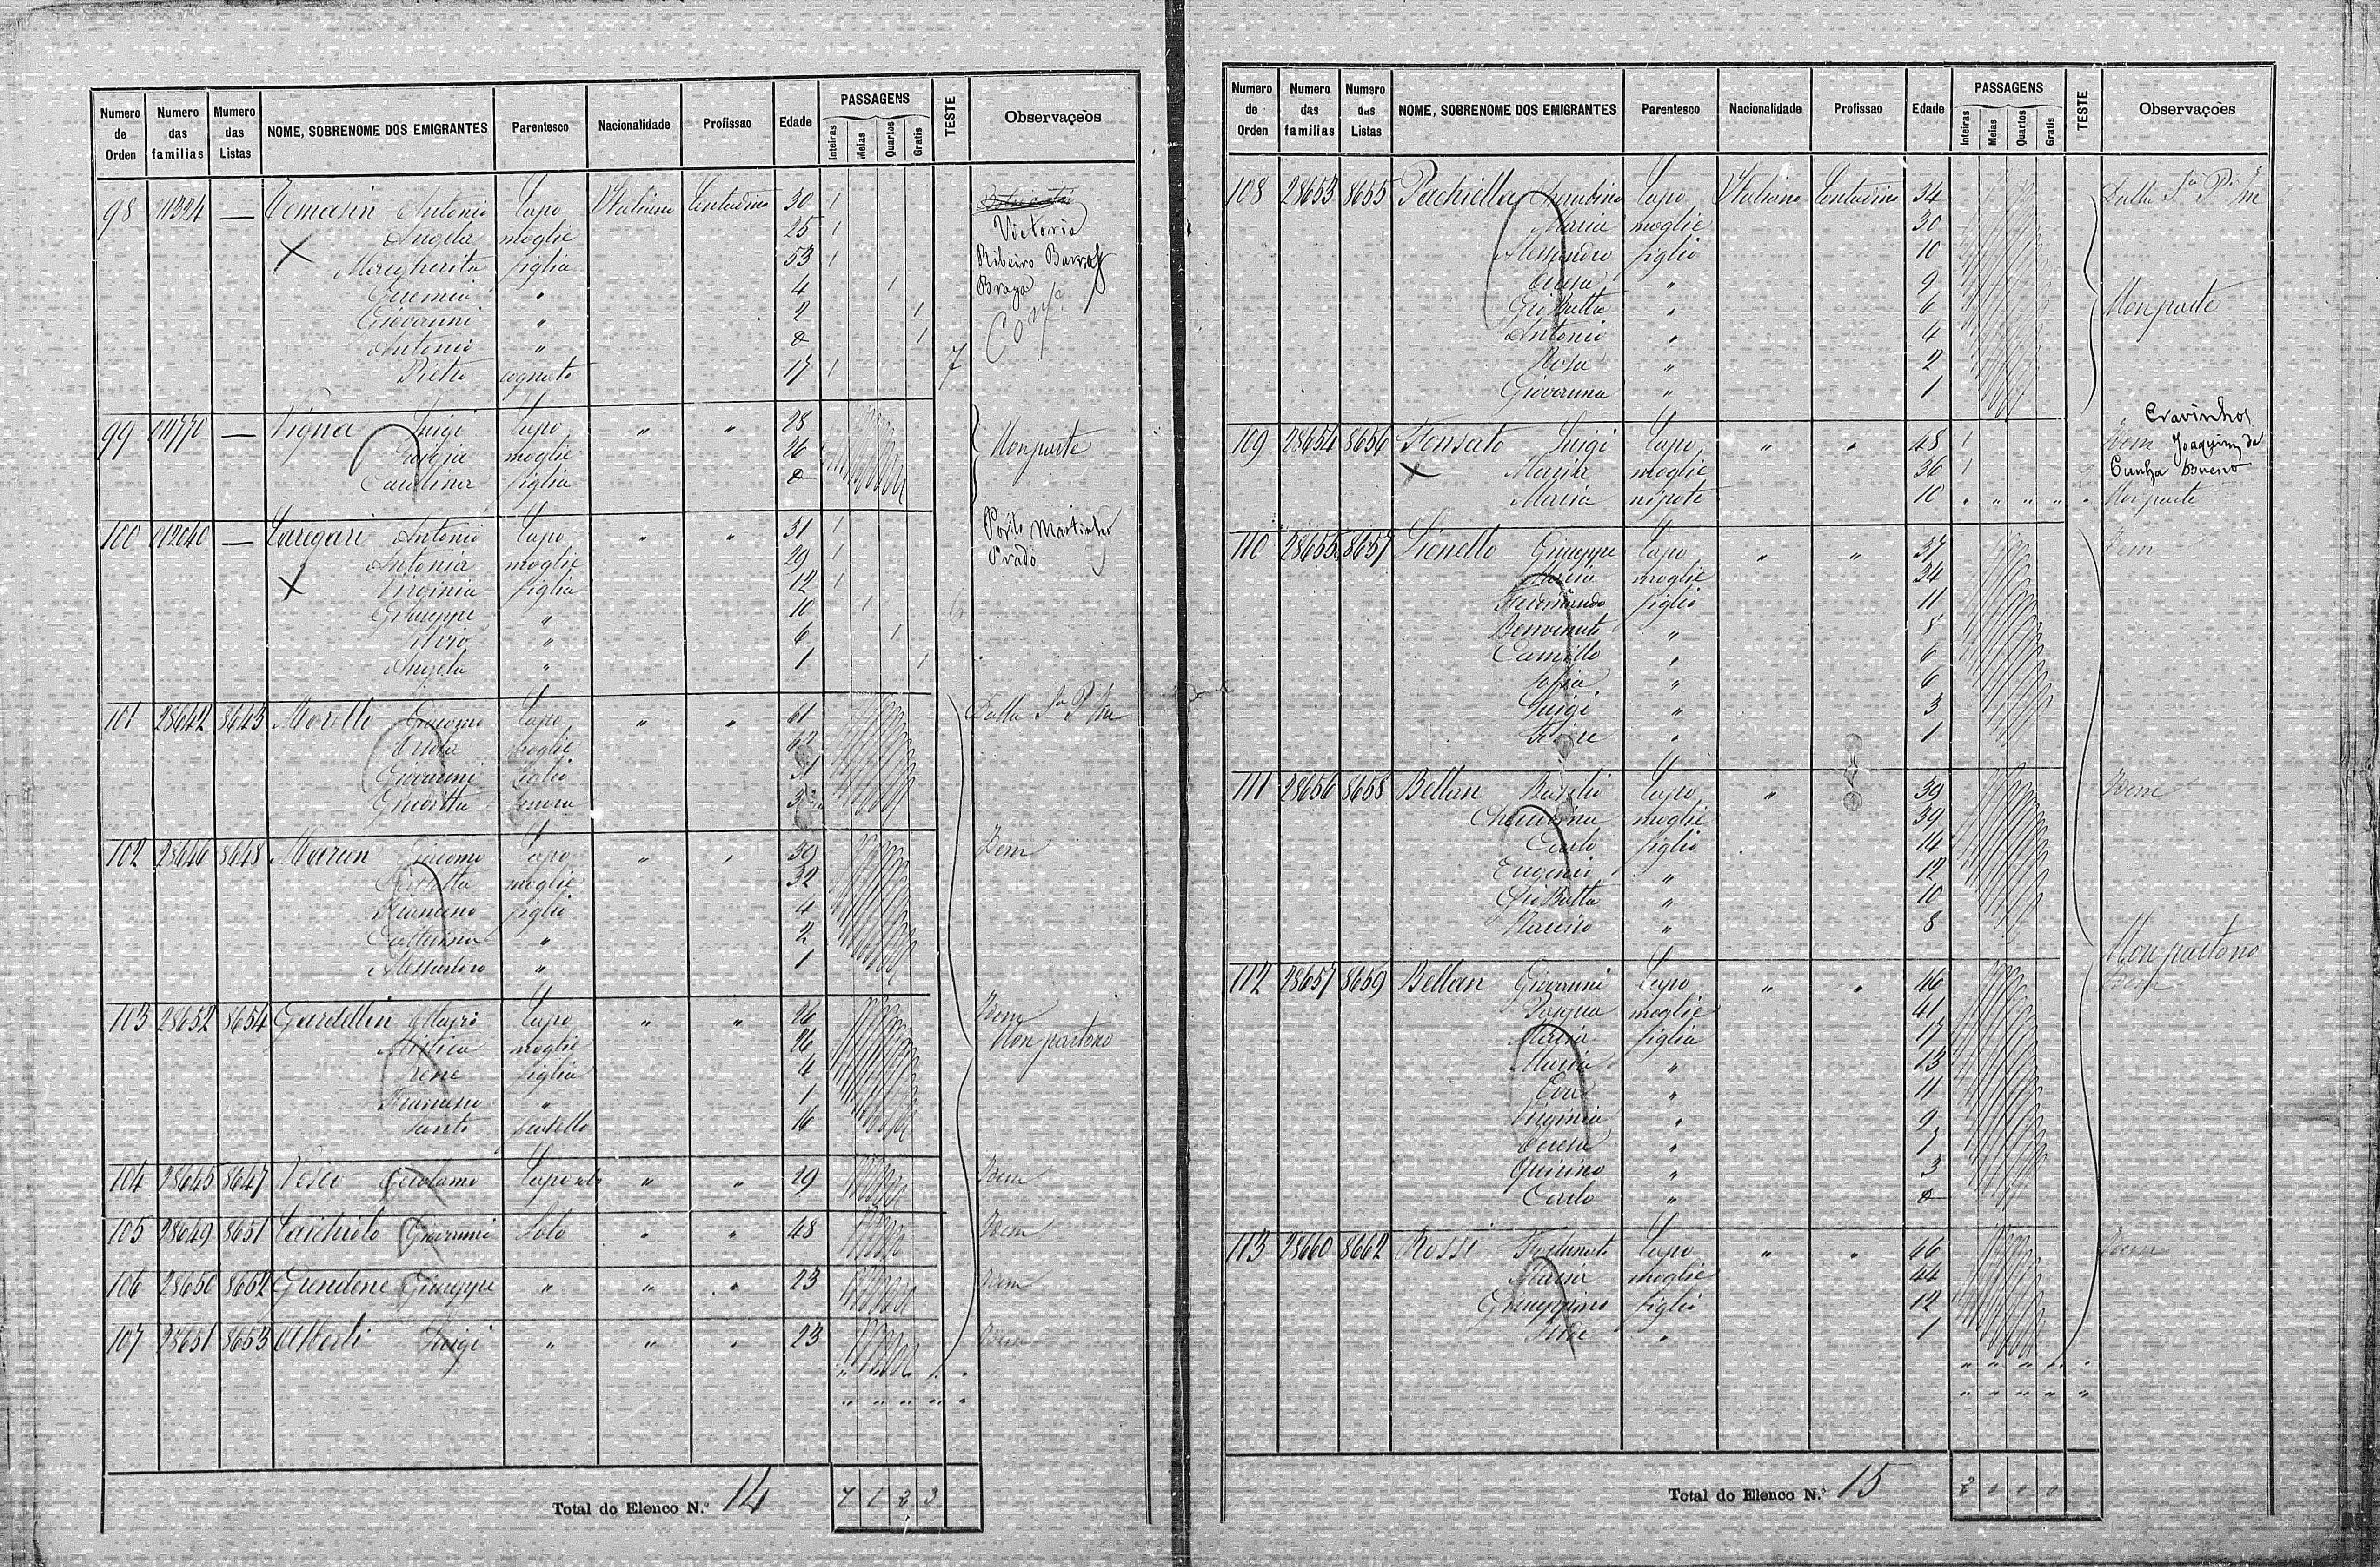 Numero de Orden | Numero das familias | Mumero das Listas | NOME, SOBRENOME DOS EMIGRANTES | Parentesco | Nacionalidade | Profissao | Edade | PASSAGENS Inteiras Meias Quartos Gratis | TESTE | Observaçeòs
98 011324 — Tomasin Antonio Capo Italiana Contadino 30 1
Angela moglie 25 1 Victoria
Margherita figlia 53 1 Ribeiro Barros
Geremia " 4 1 Braga
Giovanni " 2 1
Antonio " 1
Pietro cognato 17 1 7
99 011770 — Vigna Luigi Capo " " 28
Luigia moglie 26 Non parte
Carolina figlia
100 012040 — Antonio Capo " " 31 1 Martinho
Antonia moglie 29 1 Prado
Virginia figlia 12 1
Giuseppe " 10 1 6
Silvio " 6 1
Angela " 1 1
101 28642 8645 Morello Giacomo Capo " " 61 Dalla
moglie 62
Giovanni figlio 31
Giuditta nuora
102 28646 8648 Marun Giacomo Capo " " 39 Idem
moglie 32
Francesco figlio 4
Catterina " 2
Alessandro " 1
103 28652 8654 Gardellin Capo " " 26 Idem
Mistica moglie 26 Non partono
Irene figlia 4
Francesco " 1
Santo fratello 16
104 28645 8647 Vesco Girolamo Capo solo " " 29 Idem
105 28649 8651 Giovanni Solo " " 48 Idem
106 28650 8652 Grendene Giuseppe " " " 23 Idem
107 28651 8653 Alberti Luigi " " " 23 Idem
Total do Elenco N.º 14 7 1 2 3
Numero de Orden | Numero das familias | Numero das Listas | NOME, SOBRENOME DOS EMIGRANTES | Parentesco | Nacionalidade | Profissao | Edade | PASSAGENS Inteiras Meias Quartos Gratis | TESTE | Observações
108 28653 8655 Pachiella Cherubino Capo Italiano Contadino 34 Dalla
Maria moglie 30
Alessandro figlio 10
Teresa " 9
Gio Batta " 6 Non parte
Antonio " 4
Rosa " 2
Giovanna " 1
Cravinhos
109 28654 8656 Fonsato Luigi Capo " " 48 1 Idem Joaquim da
Maria moglie 36 1 2 Cunha Bueno
Maria nipote 10 " " " " " Non parte
110 28655 8657 Lionello Giuseppe Capo " " 37 Idem
Maria moglie 34
Ferdinando figlio 11
Benvenuto " 8
Camillo " 6
Sofia " 6
Luigi " 3
" 1
111 28656 8658 Bellan Basilio Capo " 39 Idem
moglie 39
Carlo figlio 14
Eugenio " 12
Gio Batta " 10
Narciso " 8
Non partono
112 28657 8659 Bellan Giovanni Capo " " 46 Idem
Pasqua moglie 41
Maria figlia 17
Maria " 13
Eva " 11
Virginia " 9
Teresa " 7
Quirino " 3
Carlo "
113 28660 8662 Rossi Fortunato Capo " " 46 Idem
Maria moglie 44
Giuseppino figlio 12
" 1
Total do Elenco N.º 15 2 0 0 0